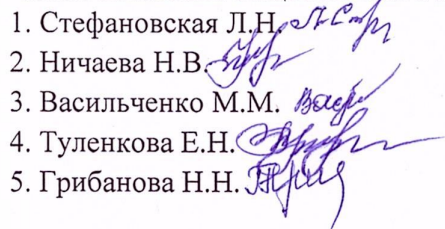 1. Стефановская Л.Н.
2. Ничаева Н.В.
3. Васильченко М.М.
4. Туленкова Е.Н.
5. Грибанова Н.Н.